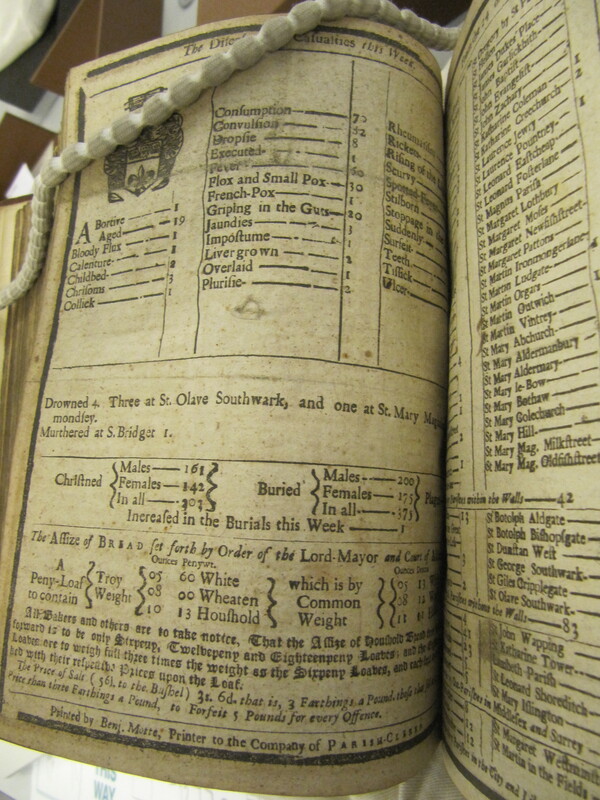 The Casualties this Week.
Abortive 1
Aged 19
Bloody Flux 1
Calenture 1
Childbed 2
Chrisoms 3
Collick 1
Consumption 72
Convulsion
Dropsie 8
Executed 1
Fever
Flox and Small Pox 30
French-Pox 1
Griping in the Guts 20
Jaundies 3
Impostume 1
Livergrown 2
Overlaid 1
Plurisie 2
Rising of the
Scurvy
Stilborn
Stoppage in
Suddenly
Surfeit
Teeth
Tissick
Ulcer
Drowned 4. Three at St. Olave Southwark, and one at St. Mary
mondsey.
Murthered at S. Bridget 1.
Christned
Males 161
Females 142
In all 303
Buried
Males 200
Females 175
In all 375
Increased in the Burials this Week 1
The Assize of BREAD set forth by Order of the Lord-Mayor and Court of
A
Peny-Loaf
to contain
Troy
Weight
Ounces Penywt.
05 60 White
08 00 Wheaten
10 13 Houshold
which is by
Common
Weight
All Bakers and others are to take notice, That the Assize of Houshold Bread
forward is to be only Sixpeny, Twelvepeny and Eighteenpeny Loaves; and the
Loaves are to weigh full three times the weight as the Sixpeny Loaves, and each
ked with their respective Prices upon the Loaf.
The Price of Salt (56l. to the Bushel) 3s. 6d. that is, 3 Farthings a Pound, those
Price than three Farthings a Pound, to Forfeit 5 Pounds for every Offence.
Printed by Benj. Motte, Printer to the Company of PARISH-CLERKS
John Evangelist
John Zachary
Katharine Coleman
Katharine Creechurch
Laurence Jewry
Laurence Pountney
Leonard Eastcheap
Leonard Fosterlane
St Magnus Parish
St Margaret Lothbury
St Margaret Moses
St Margaret Newfishstreet
St Margaret Pattons
St Martin Ironmongerlane
St Martin Ludgate
St Martin Orgars
St Martin Outwich
St Martin Vintrey
St Mary Abchurch
St Mary Aldermanbury
St Mary Aldermary
St Mary le-Bow
St Mary Bothaw
St Mary Colechurch
St Mary Hill
St Mary Mag. Milkstreet
St Mary Mag. Oldfishstreet
within the Walls 42
St Botolph Aldgate
St Botolph Bishopsgate
St Dunstan West
St George Southwark
St Giles Cripplegate
St Olave Southwark
the Walls 83
John Wapping
St Katharine Tower
Lambeth-Parish
St Leonard Shoreditch
St Mary Islington
in Middlesex and Surrey
St Margaret Westminster
St Martin in the Fields
in the City and
THIS
WAY